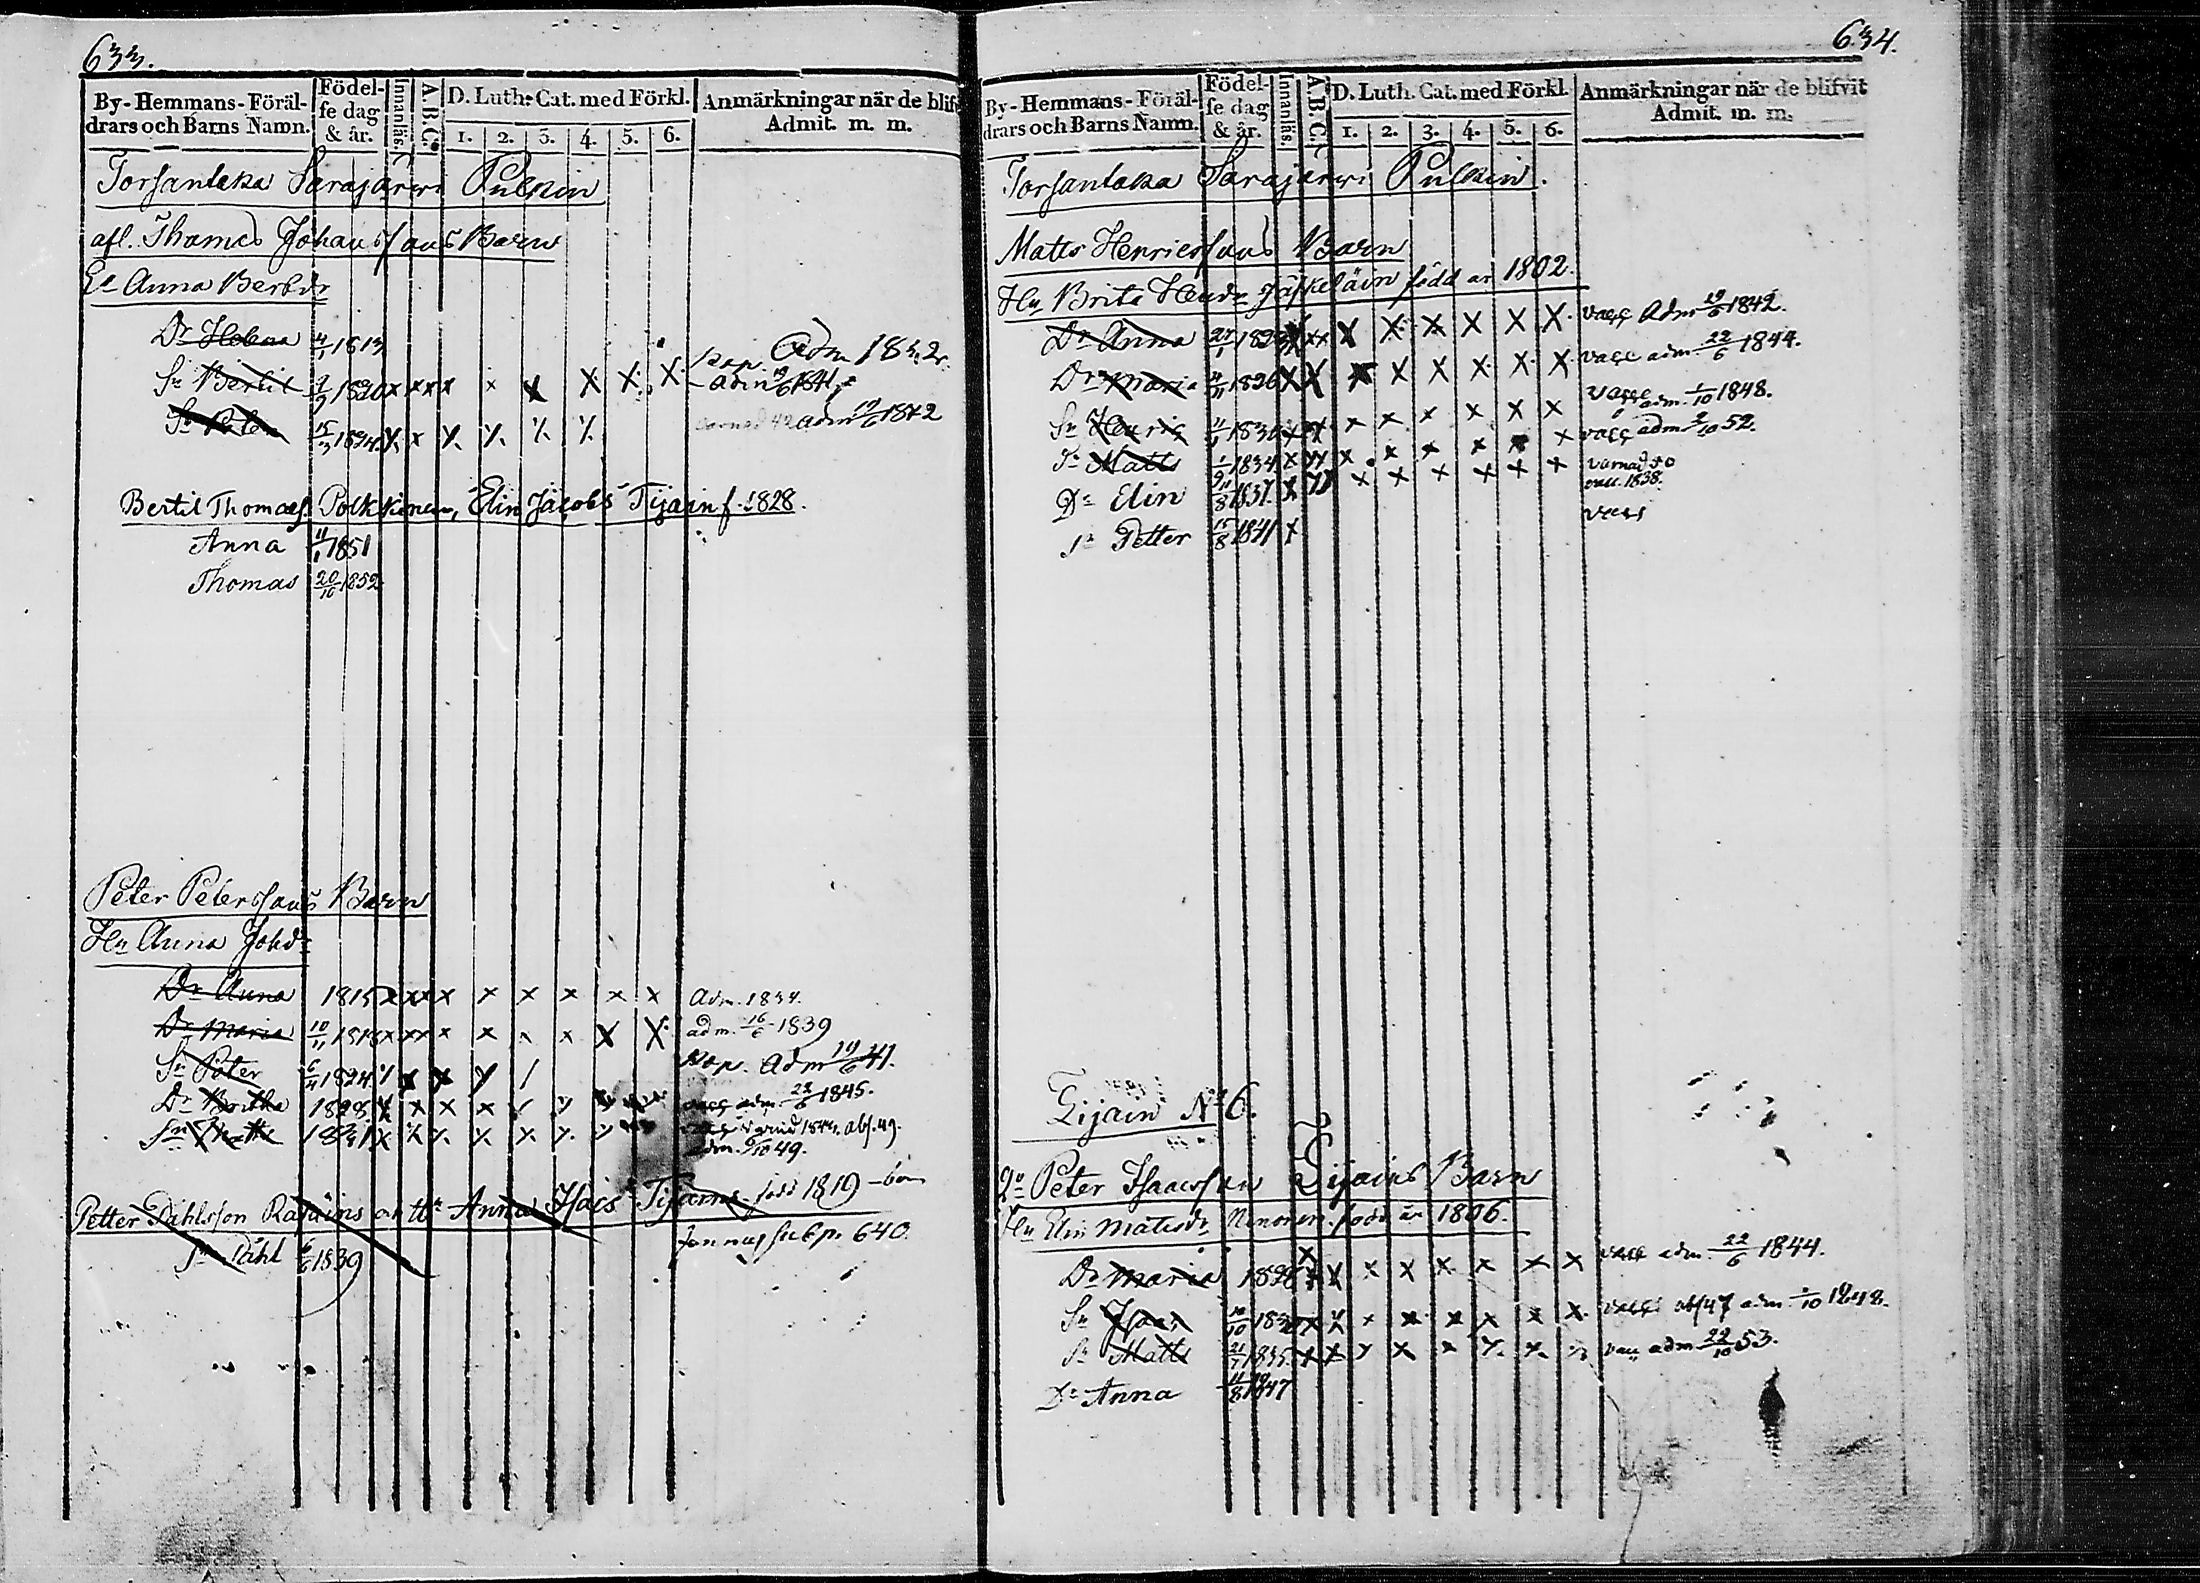 633.
By-Hemmans-Föräl-
drars och Barns Namn.
Födel-
se dag
& år.
Innanläs.
A.B.C.
D. Luth: Cat. med Förkl.
1. 2. 3. 4. 5. 6.
Anmärkningar när de blifv
Admit. m. m.
Torsantaka Sarajärwi Pulkin
afl. Thomas Johanssons Barn
Ea Anna Bertdr
Dr Helena 4/1 1813 Adm 1832.
Sn Bertil 1820 x x x x x x x x x kop. adm 19/6 1841
Sn Peter 15/3 1824 x x x x x x adm 19/6 1842
Bertil Thomass. Polkkinen, Elin Jacobs Tijain f. 1828.
Anna 11/1 1851
Thomas 20/10 1852
Peter Peterssons Barn
Hu Anna Johdr
Dr Anna 1815 x x x x x x x x x Adm. 1834.
Dr Maria 10/11 1818 x x x x x x x x x adm. 16/6 1839
Sn Peter 6/4 1824 x x x x / kop. adm 19/6 41.
Dr Britha 1828 x x x x x x x x vacc adm. 22/6 1845.
Sn 1831 x x x x x x x abs. 49.
adm. 49.
Petter Påhlsson Anna Isacs Tijains född 1819
Sn Påhl 6/6 1839 640.
634.
By-Hemmans-Föräl-
drars och Barns Namn.
Födel-
se dag
& år.
Innanläs.
A.B.C.
D. Luth. Cat. med Förkl.
1. 2. 3. 4. 5. 6.
Anmärkningar när de blifvit
Admit. m. m.
Torsantaka Sarajärwi Pulkin.
Matts Henricssons Barn
Hu Brita Hendr Jäskeläin född år 1802.
Dr Anna 1823 x x x x x x x x x vacc Adm 19/6 1842.
Dr Maria 1826 x x x x x x x x vacc adm 22/6 1844.
Sn Henric 1830 x x x x x x x x vacc adm. 1/10 1848.
Sn Matts 1834 x x x x x x x x vacc adm 2/10 52.
Dr Elin 1837 x x x x x x x x vacc. 1838.
Sn Petter 15/8 1841 x vacc
Tijain No 6.
Peter Isacsson Tijains Barn
Hu Elin Matsdr Ninonen född år 1806.
Dr Maria 1828 x x x x x x x x vacc adm 22/6 1844.
Sn Isaac 1832 x x x x x x x x vacc abs 47 adm 1/10 1848.
Sn Matts 21/7 1835 x x x x x x x x vacc adm 22/10 53.
Dr Anna 1847